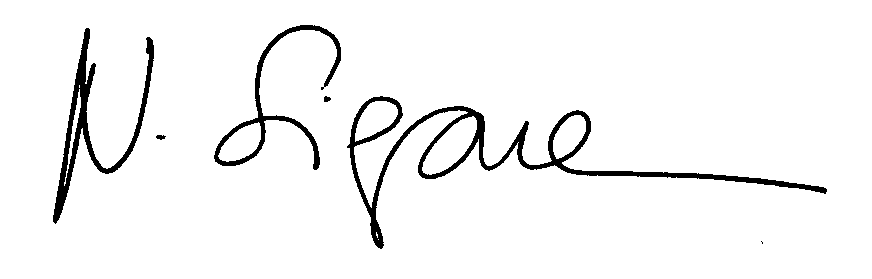 N. Sigare